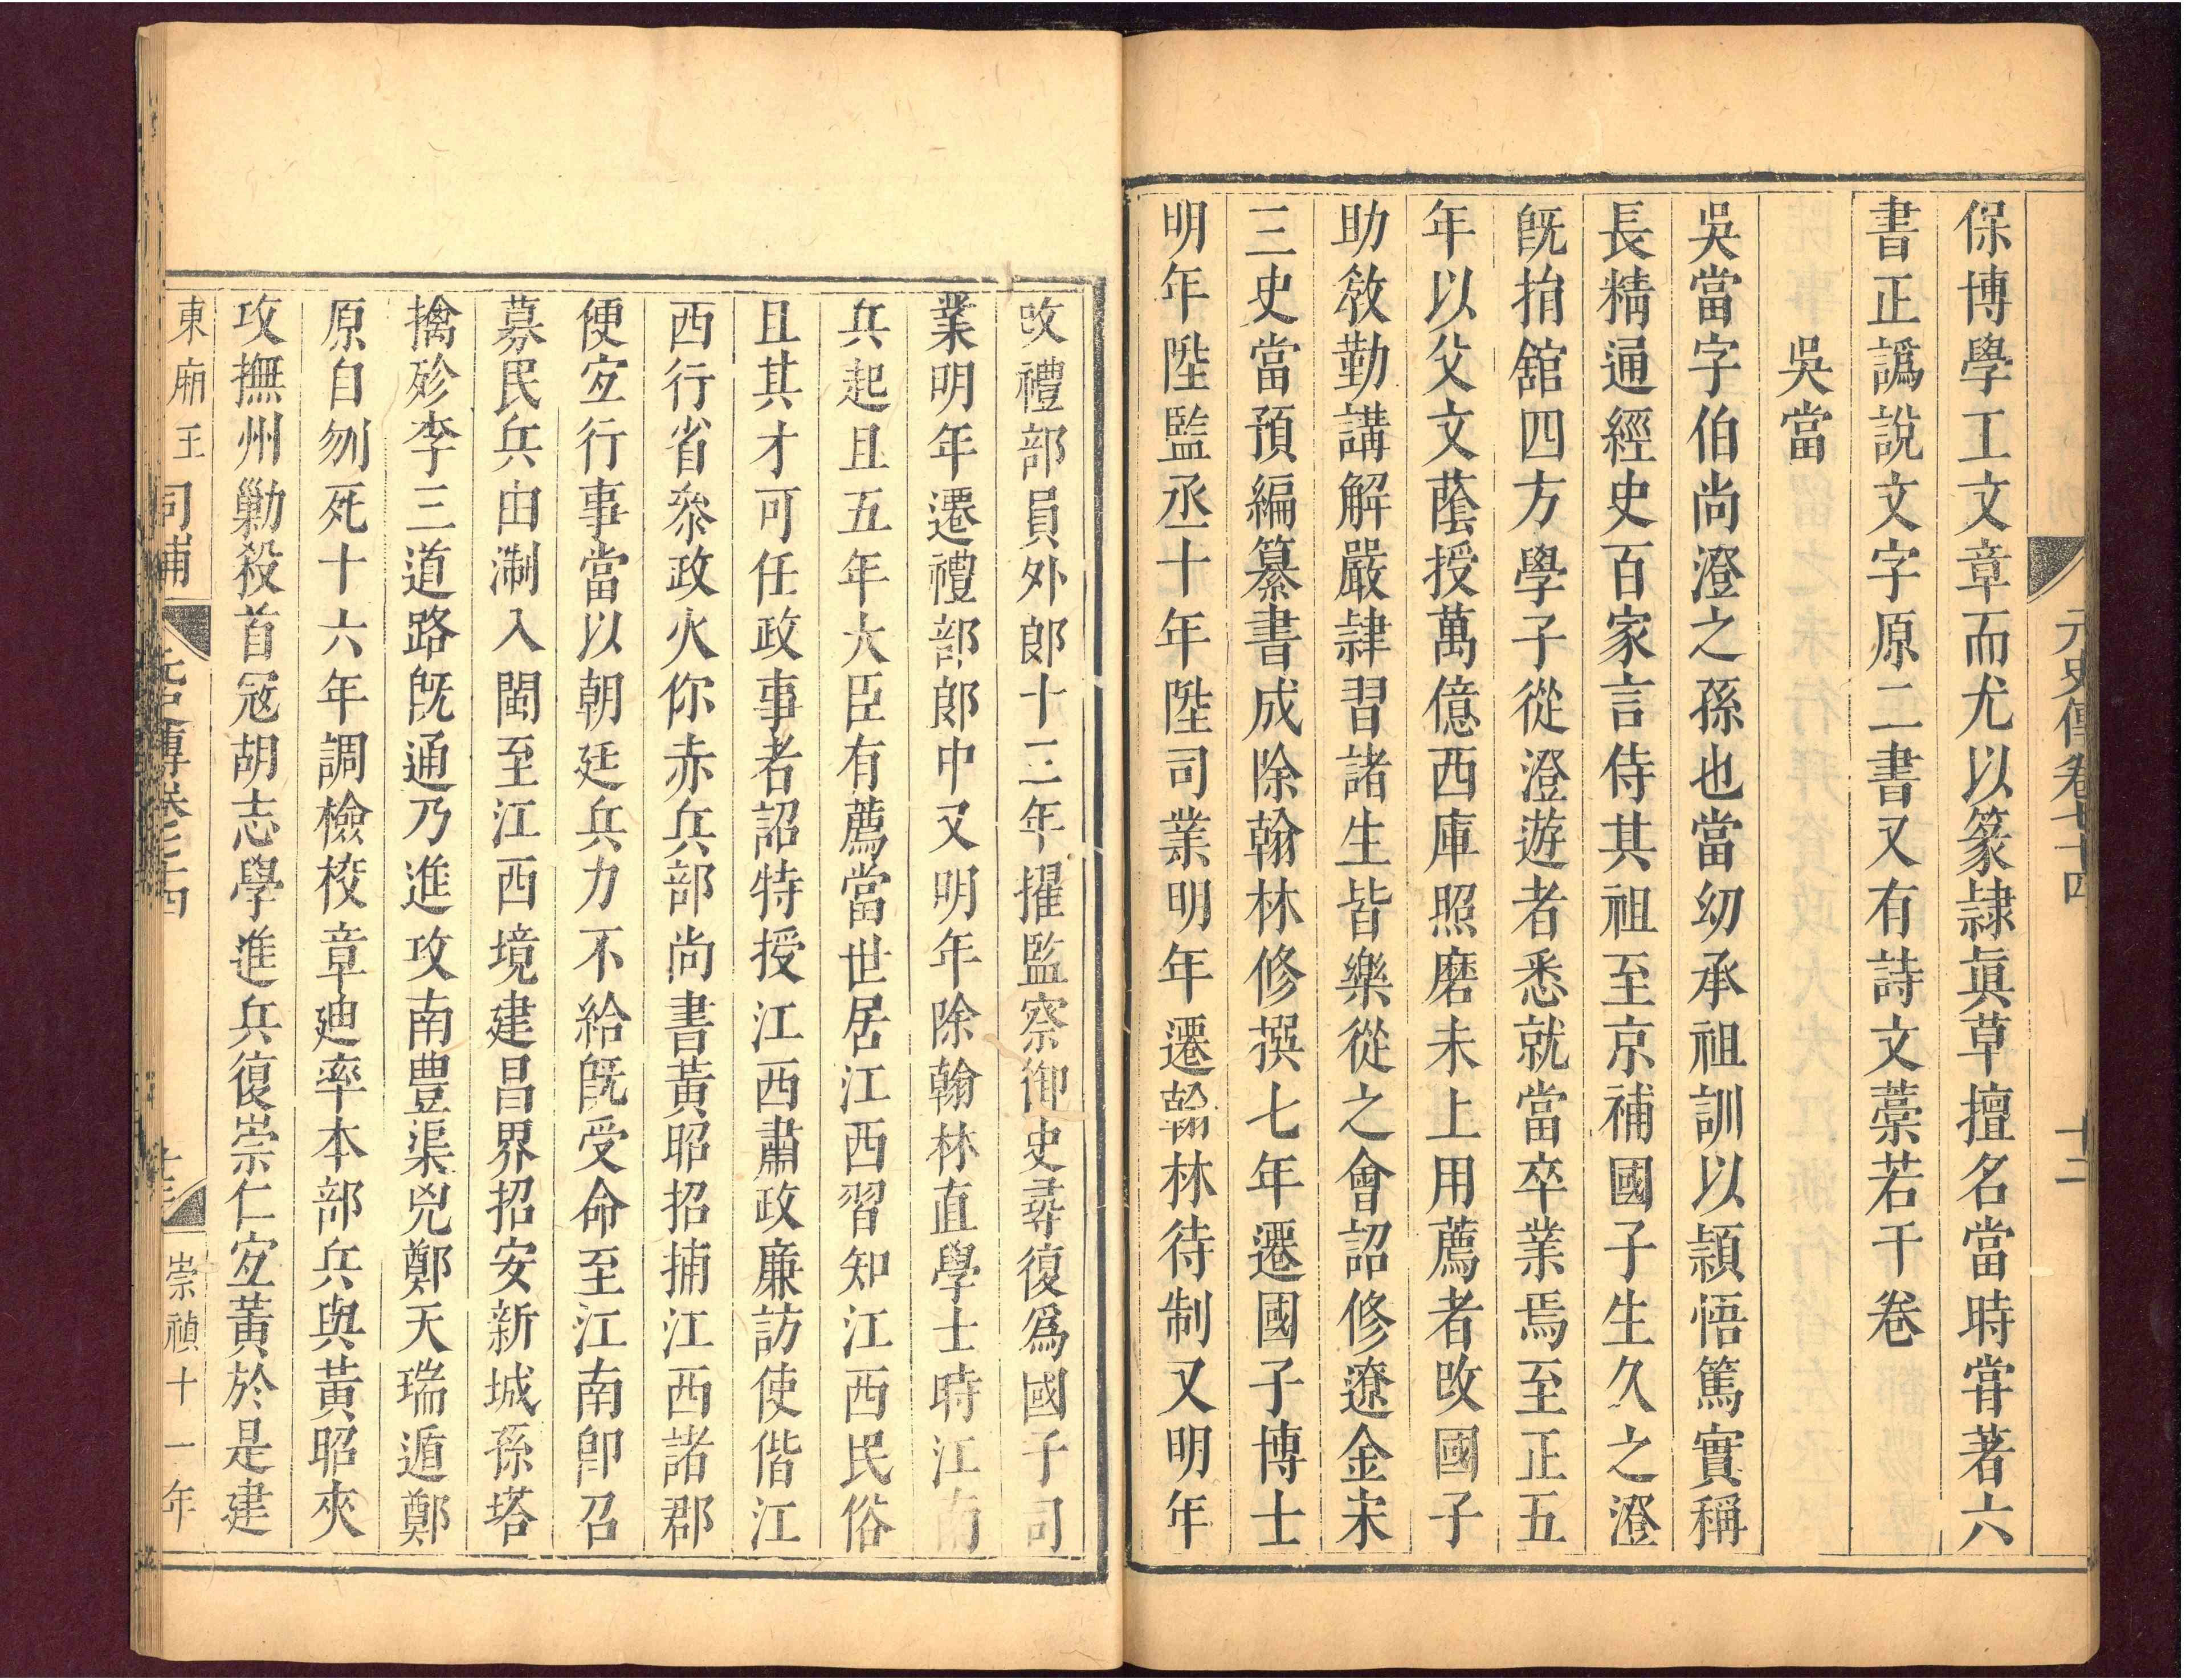 元史傳卷七十四
十二
保博學工文章而尤以篆隷眞草擅名當時甞著六
書正譌說文字原二書又有詩文藁若干卷
吳當
吳當字伯尚澄之孫也當幼承祖訓以頴悟篤實稱
長精通經史百家言侍其祖至京補國子生久之澄
旣捐舘四方學子從澄遊者悉就當卒業焉至正五
年以父文蔭授萬億西庫照磨未上用薦者改國子
助敎勤講解嚴肄習諸生皆樂從之會詔修遼金宋
三史當預編纂書成除翰林修撰七年遷國子博士
明年陞監丞十年陞司業明年遷翰林待制又明年
改禮部員外郎十三年擢監察御史尋復爲國子司
業明年遷禮部郎中又明年除翰林直學士時江南
兵起且五年大臣有薦當世居江西習知江西民俗
且其才可任政事者詔特授江西肅政廉訪使偕江
西行省叅政火你赤兵部尚書黃昭招捕江西諸郡
便宐行事當以朝廷兵力不給旣受命至江南卽召
募民兵由淛入閩至江西境建昌界招安新城孫塔
擒殄李三道路旣通乃進攻南豊渠兇鄭天瑞遁鄭
原自刎死十六年調檢校章廸率本部兵與黃昭夾
攻撫州勦殺首冦胡志學進兵復崇仁宐黃於是建
東廂王司補
元史傳卷七十四
十三
崇禎十一年